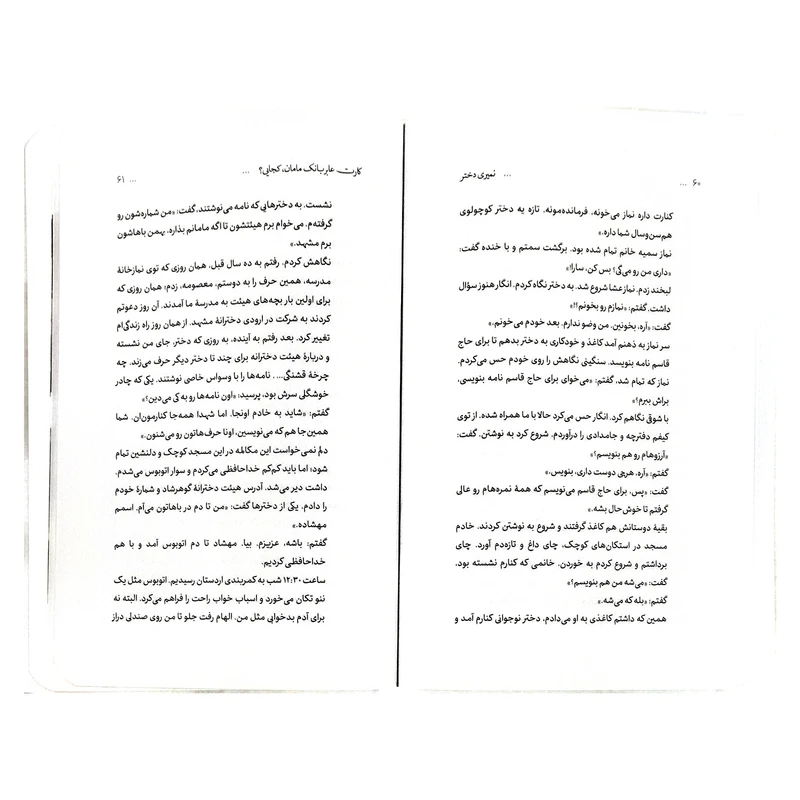 ۶۰ ...
... نمیری دختر
کنارت داره نماز می‌خونه، فرمانده‌مونه. تازه یه دختر کوچولوی
هم‌سن‌وسال شما داره.»
نماز سمیه خانم تمام شده بود. برگشت سمتم و با خنده گفت:
«داری من رو می‌گی؟ بس کن، سارا!»
لبخند زدم. نماز عشا شروع شد. به دختر نگاه کردم. انگار هنوز سؤال
داشت. گفتم: «نمازم رو بخونم؟!»
گفت: «آره، بخونین. من وضو ندارم. بعد خودم می‌خونم.»
سر نماز به ذهنم آمد کاغذ و خودکاری به دختر بدهم تا برای حاج
قاسم نامه بنویسد. سنگینی نگاهش را روی خودم حس می‌کردم.
نماز که تمام شد، گفتم: «می‌خوای برای حاج قاسم نامه بنویسی،
براش ببرم؟»
با شوقی نگاهم کرد. انگار حس می‌کرد حالا با ما همراه شده. از توی
کیفم دفترچه و جامدادی را درآوردم. شروع کرد به نوشتن. گفت:
«آرزوهام رو هم بنویسم؟»
گفتم: «آره، هرچی دوست داری، بنویس.»
گفت: «پس، برای حاج قاسم می‌نویسم که همهٔ نمره‌هام رو عالی
گرفتم تا خوش‌حال بشه.»
بقیهٔ دوستانش هم کاغذ گرفتند و شروع به نوشتن کردند. خادم
مسجد در استکان‌های کوچک، چای داغ و تازه‌دم آورد. چای
برداشتم و شروع کردم به خوردن. خانمی که کنارم نشسته بود،
گفت: «می‌شه من هم بنویسم؟»
گفتم: «بله که می‌شه.»
همین که داشتم کاغذی به او می‌دادم، دختر نوجوانی کنارم آمد و
کارت عابربانک مامان، کجایی؟ ...
... ۶۱
نشست. به دخترهایی که نامه می‌نوشتند، گفت: «من شماره‌شون رو
گرفته‌م. می‌خوام برم هیئتشون تا اگه مامانم بذاره، بهمن باهاشون
برم مشهد.»
نگاهش کردم. رفتم به ده سال قبل، همان روزی که توی نمازخانهٔ
مدرسه، همین حرف را به دوستم، معصومه، زدم؛ همان روزی که
برای اولین بار بچه‌های هیئت به مدرسهٔ ما آمدند. آن روز دعوتم
کردند به شرکت در اردوی دخترانهٔ مشهد. از همان روز راه زندگی‌ام
تغییر کرد. بعد رفتم به آینده، به روزی که دختر، جای من نشسته
و دربارهٔ هیئت دخترانه برای چند تا دختر دیگر حرف می‌زند. چه
چرخهٔ قشنگی... . نامه‌ها را با وسواس خاصی نوشتند. یکی که چادر
خوشگلی سرش بود، پرسید: «اون نامه‌ها رو به کی می‌دین؟»
گفتم: «شاید به خادم اونجا. اما شهدا همه‌جا کنارمون‌ان. شما
همین‌جا هم که می‌نویسین، اونا حرف‌هاتون رو می‌شنون.»
دلم نمی‌خواست این مکالمه در این مسجد کوچک و دلنشین تمام
شود؛ اما باید کم‌کم خداحافظی می‌کردم و سوار اتوبوس می‌شدم.
داشت دیر می‌شد. آدرس هیئت دخترانهٔ گوهرشاد و شمارهٔ خودم
را دادم. یکی از دخترها گفت: «من تا دم در باهاتون می‌آم. اسمم
مهشاده.»
گفتم: باشه، عزیزم. بیا. مهشاد تا دم اتوبوس آمد و با هم
خداحافظی کردیم.
ساعت ۱۲:۳۰ شب به کمربندی اردستان رسیدیم. اتوبوس مثل یک
ننو تکان می‌خورد و اسباب خواب راحت را فراهم می‌کرد. البته نه
برای آدم بدخوابی مثل من. الهام رفت جلو تا من روی صندلی دراز